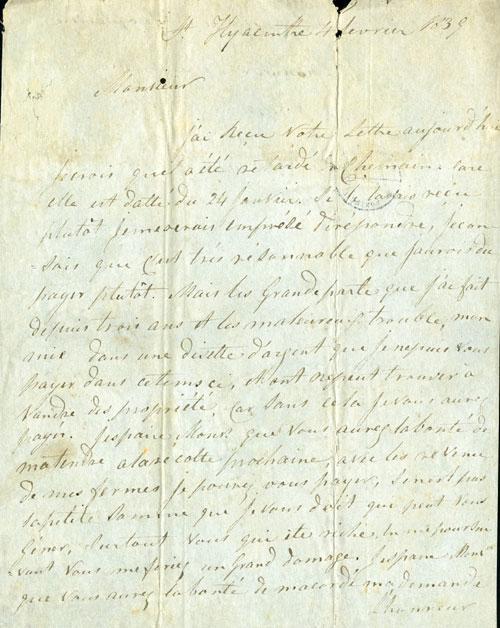 St Hyacinthe 4 fevrier 1839
Monsieur
J'ai Reçu Votre Lettre aujourd'hui
Je crois quel a été retardé Chemain. care
elle est datté du 24 Janvier. Si je lavais reçu
plutôt Je meverais empressé di repondre, Je con
-sais que C'est très résonnable que Jaurois du
payer plutôt. Mais les Grande parte que j'ai fait
depuis trois ans et les maleureux trouble, mon
mie dans une disette d'argent que Je ne puis vous
payer dans cetems ci, et l'ont ne peut trouver a
Vandre des propriété, Car sans cela Je vous aurez
payer. Jespaire Monsr que Vous aurez la bonté de
matendre a la recolte prochaine, avec les revenu
de mes fermes Je pourez vous payer, se n'est pas
la petite Somme que je vous doit que peut vous
Géner, Surtout Vous que ite riche, en me poursui
-vant Vous me feriez un Grand domage. Jespaire Monsr
que Vous aurez la bonté de macordé ma demande
L'honneur